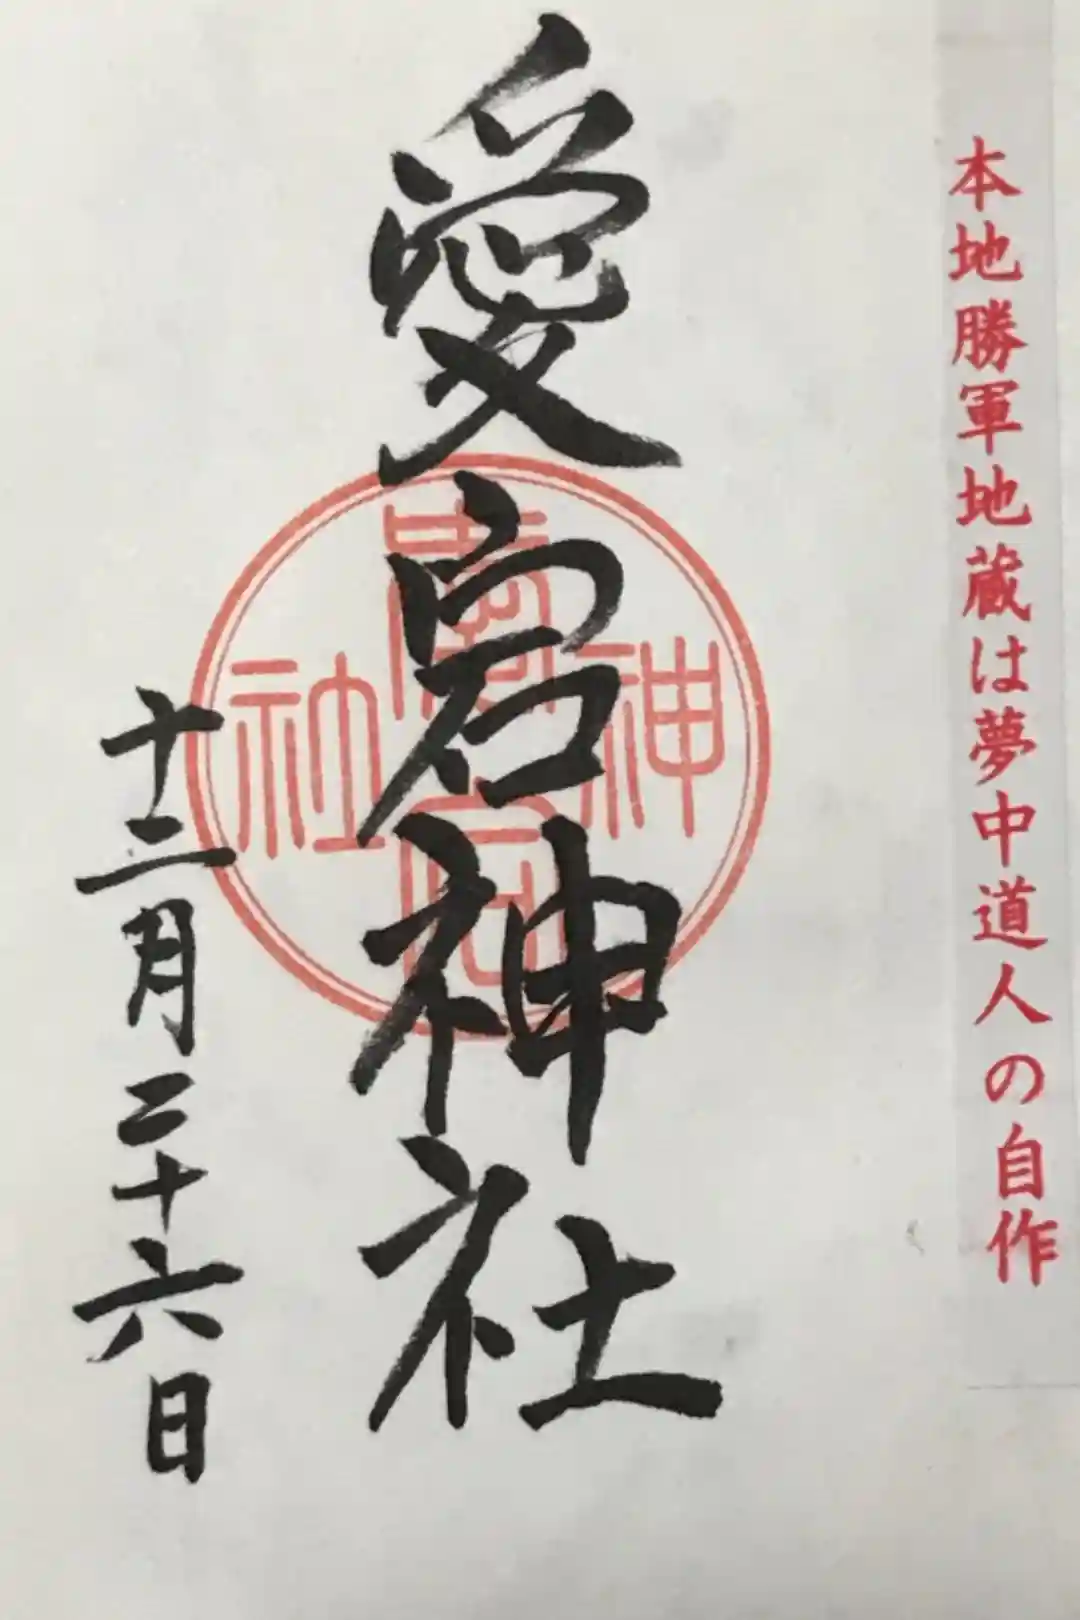 本地勝軍地蔵は夢中道人の自作
愛宕神社
愛宕
神社
十二月二十六日